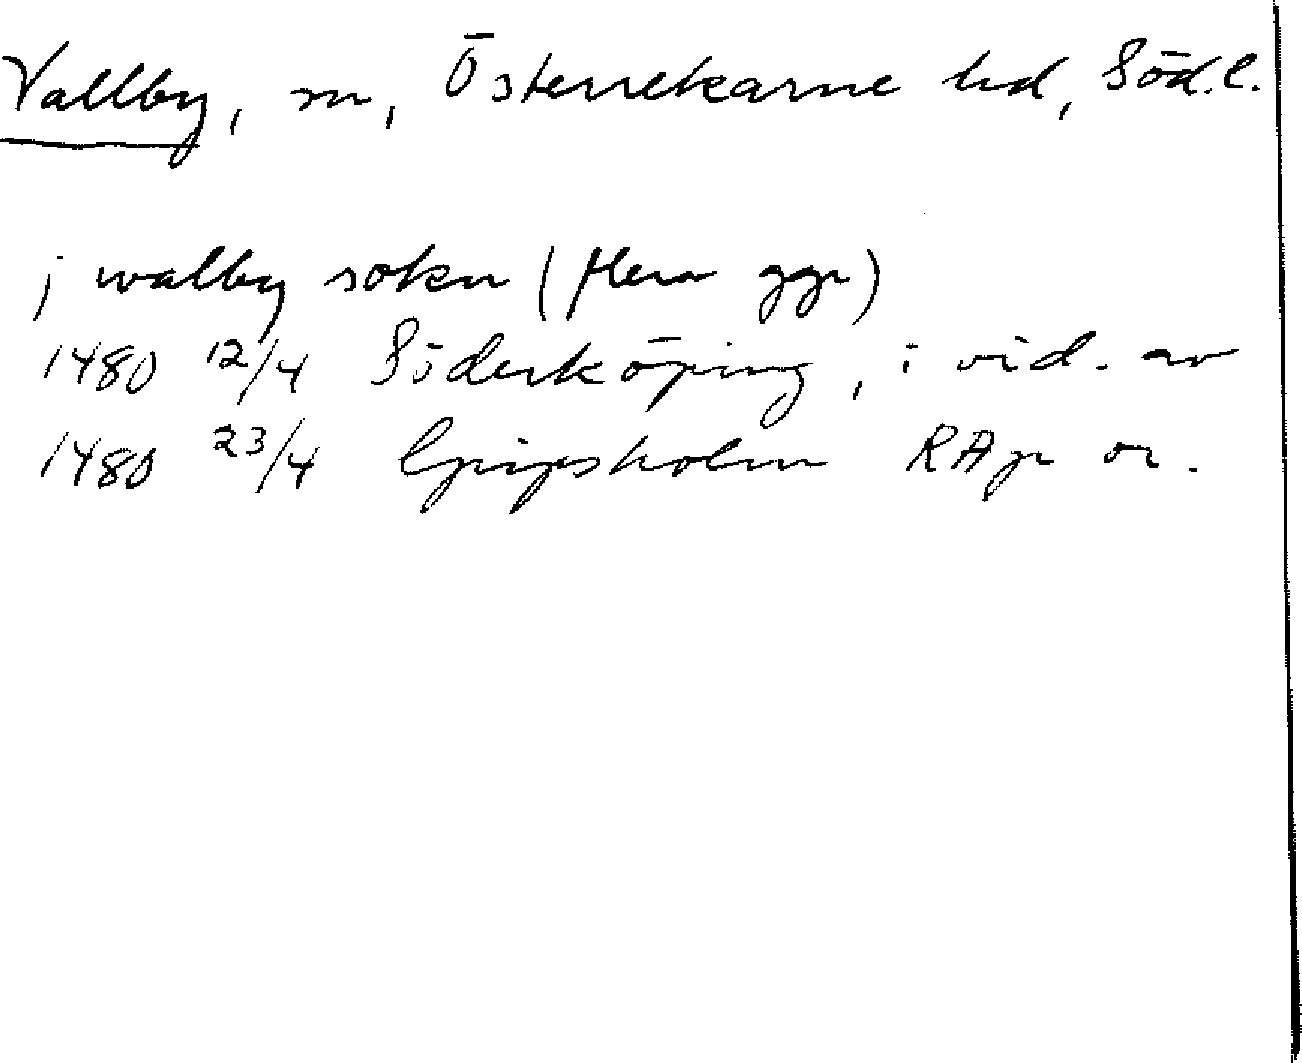 Vallby, sn, Österrekarne hd, Söd.l.
j walby sokn (flera ggr)
1480 12/4 Söderköping, i vid. av
1480 23/4 Gripsholm RAp or.